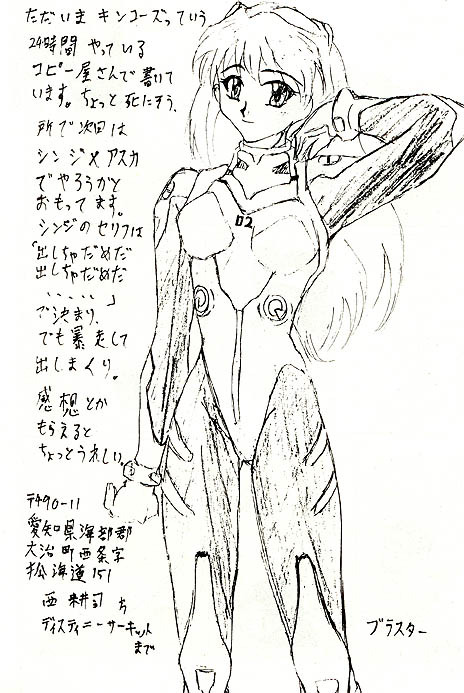 ただいま キンコーズっていう
24時間 やっている
コピー屋さんで 書いて
います。ちょっと 死にそう。
所で 次回は
シンジ×アスカ
でやろうかと
おもってます。
シンジのセリフは
「出しちゃだめだ
出しちゃだめだ
、、、、、」
で決まり、
でも暴走して
出しまくり。
感想とか
もらえると
ちょっとうれしい。
〒490-11
愛知県海部郡
大治町西条字
松海道151
西 耕司 方
ディスティニーサーキット
まで
ブラスター
02